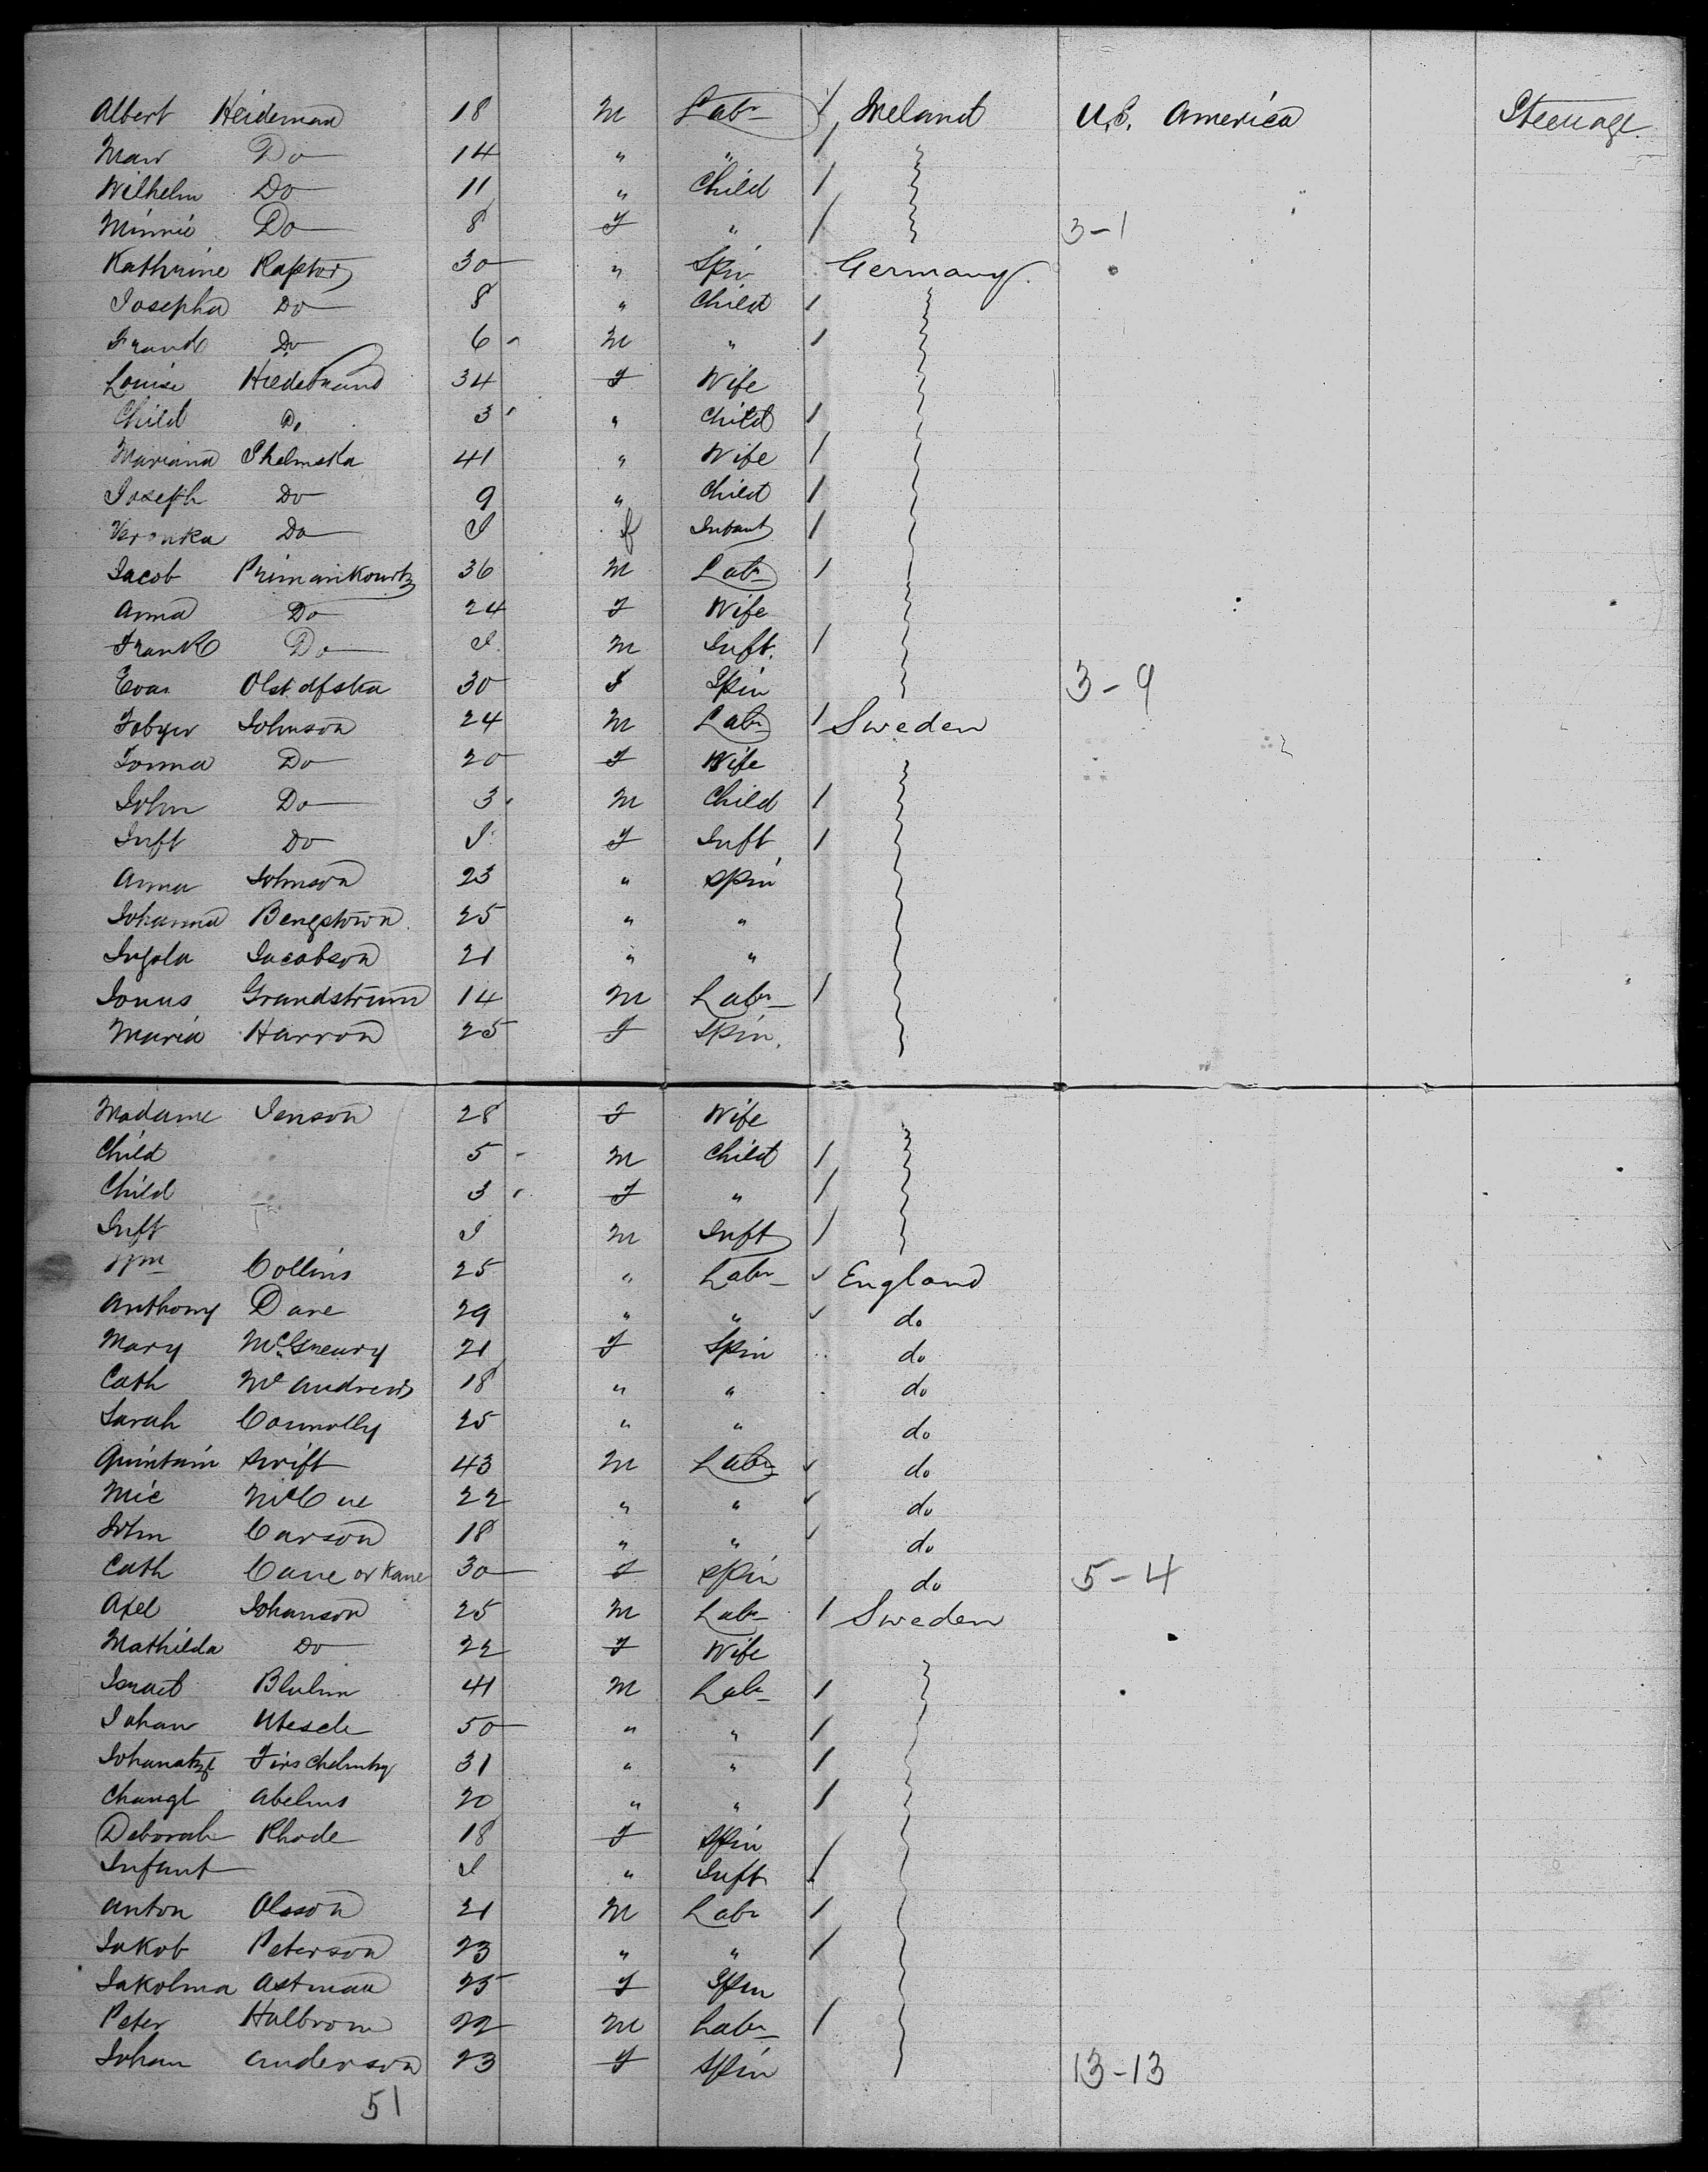 Albert Heideman 18 M Labr / Ireland U.S. America Steerage
Max Do 14 " " /
Wilhelm Do 11 " Child /
Minnie Do 8 F " / 3-1
Kathrine Raptor 30 " Spin Germany
Josepha Do 8 " Child /
Frank Do 6 M " /
Louise Hildebrand 34 F Wife
Child Do 3 " Child /
Mariana Shelmska 41 " Wife /
Joseph Do 9 " Child /
Veronka Do I f Infant /
Jacob Primankowitz 36 M Labr /
Anna Do 24 F Wife
Frank Do I M Inft. /
Eva Olstdfska 30 F Spin 3-9
Johnson 24 M Labr / Sweden
Do 20 F Wife
John Do 3 M Child /
Inft Do I F Inft /
Anna Johnson 23 " Spin
Johanna Bengstown 25 " "
Jacobson 21 " "
Jonus Grandstrum 14 M Labr /
Maria Harron 25 F Spin.
Madame Jenson 28 F Wife
Child 5 M Child /
Child 3 F " /
Inft I M Inft /
Wm Collins 25 " Labr ✓ England
Anthony Dane 29 " " ✓ do
Mary McGreury 21 F Spin do
Cath McAndrews 18 " " do
Sarah Connolly 25 " " do
Quintain Swift 43 M Labr ✓ do
Mic McCue 22 " " ✓ do
John Carson 18 " " ✓ do
Cath Cane or Kane 30 F Spin do 5-4
Axel Johanson 25 M Labr / Sweden
Mathilda Do 22 F Wife
Israel Bluhm 41 M Labr /
Johan 50 " " /
31 " " /
Abelms 20 " " /
Deborah Rhode 18 F Spin
Infant I " Inft /
Anton Olsson 21 M Labr /
Jakob Peterson 23 " " /
Jakolma Astman 25 F Spin
Peter Halbrom 22 M Labr /
Johan Anderson 23 F Spin 13-13
51